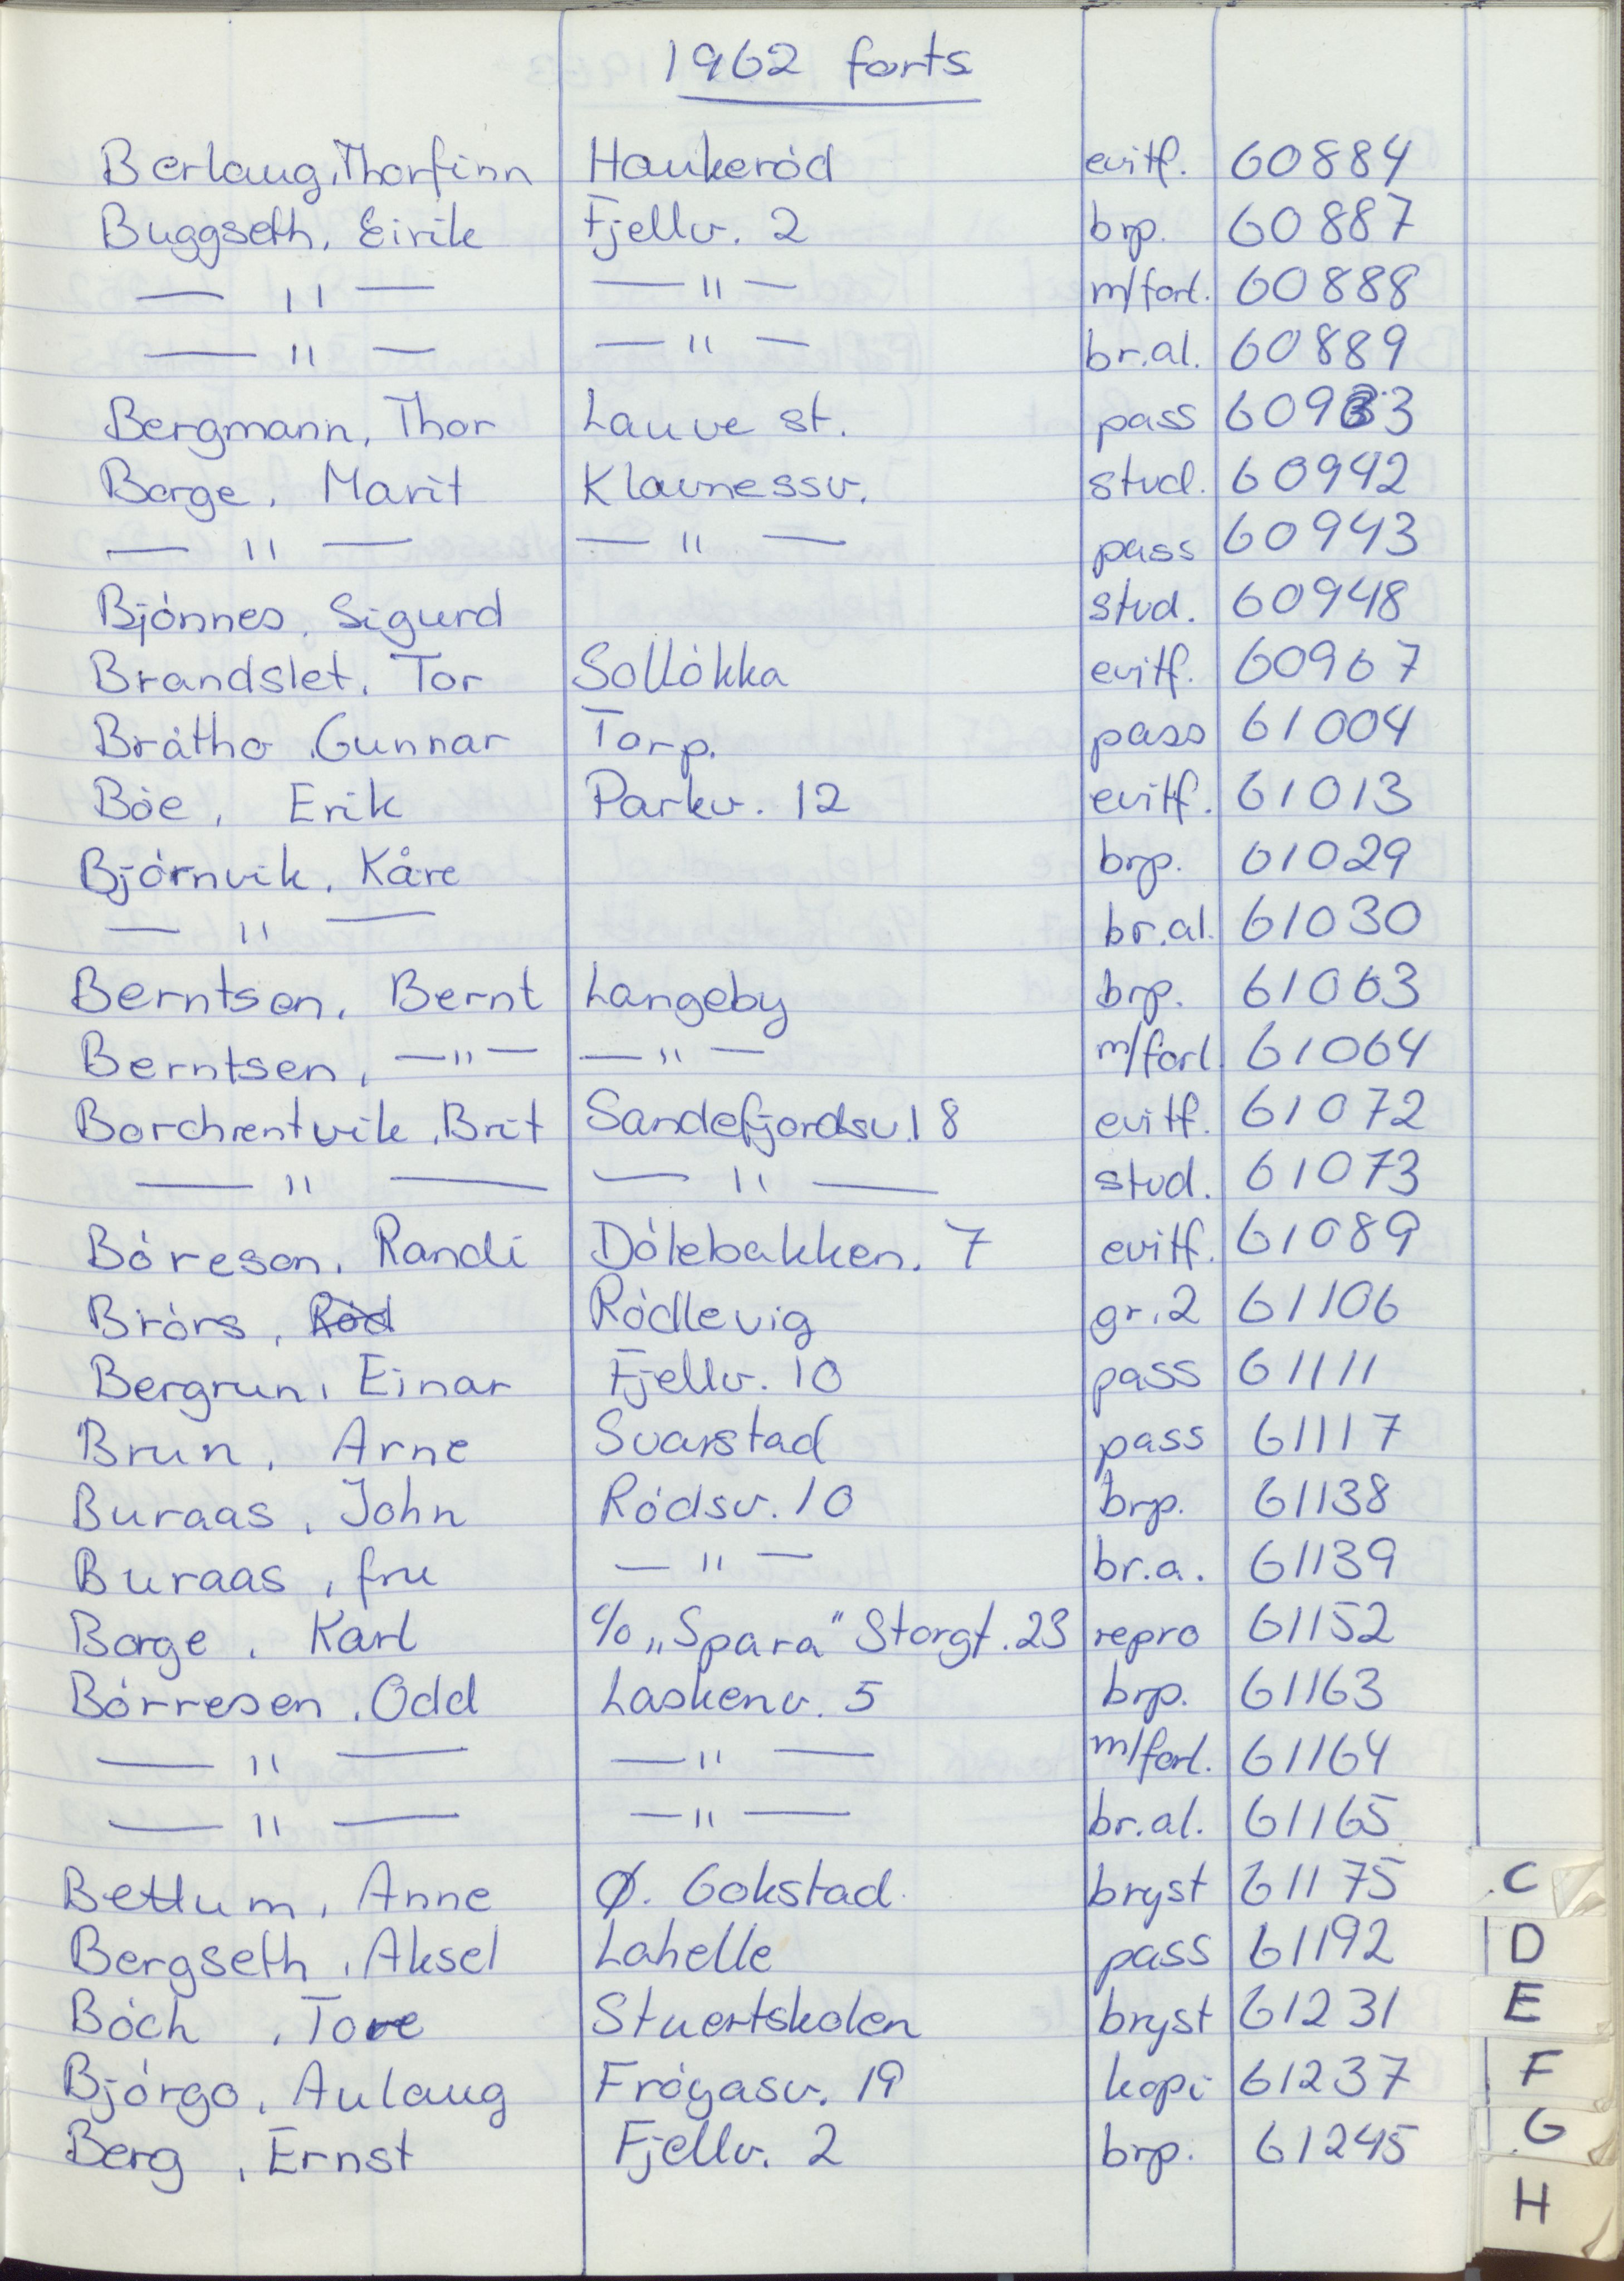 1962 forts
Berlaug, Thorfinn Haukeród evitf. 60884
Buggseth, Eirik Fjellv. 2 brp. 60887
— " — — " — m/forl. 60888
— " — — " — br.al. 60889
Bergmann, Thor Lauve st. pass 60933
Borge, Marit Klavnessv. stud. 60942
— " — — " — pass 60943
Bjónnes, Sigurd stud. 60948
Brandslet, Tor Sollókka evitf. 60967
Bråtho, Gunnar Torp. pass 61004
Bóe, Erik Parkv. 12 evitf. 61013
Bjórnvik, Kåre brp. 61029
— " — br.al. 61030
Berntsen, Bernt Langeby brp. 61063
Berntsen, — " — — " — m/forl. 61064
Borchrentvik, Brit Sandefjordsv. 18 evitf. 61072
— " — — " — stud. 61073
Bóresen, Randi Dólebakken. 7 evitf. 61089
Brórs, Ród Ródlevig gr. 2 61106
Bergrun, Einar Fjellv. 10 pass 61111
Brun, Arne Svarstad pass 61117
Buraas, John Ródsv. 10 brp. 61138
Buraas, fru — " — br.a. 61139
Borge, Karl c/o „Spara" Storgt. 23 repro 61152
Bórresen, Odd Laskenv. 5 brp. 61163
— " — — " — m/forl. 61164
— " — — " — br.al. 61165
Bettum, Anne Ø. Gokstad. bryst 61175
Bergseth, Aksel Lahelle pass 61192
Bóch, Tore Stuertskolen bryst 61231
Bjórgo, Aulaug Fróyasv. 19 kopi 61237
Berg, Ernst Fjellv. 2 brp. 61245
C
D
E
F
G
H